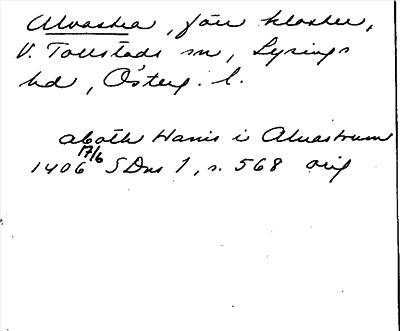 Alvastra, förr kloster,
V. Tollstads sn, Lysings
hd, Österg. l.
aboth Hanis i Aluastrum
17/6
1406 SDns 1, s. 568 orig